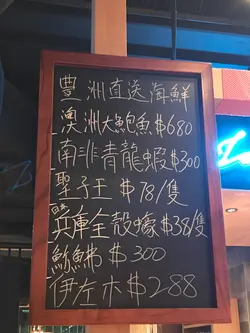 豊洲直送海鮮
澳洲大鮑魚$680
南非青龍蝦$300
聖子王 $78/隻
兵庫全殼蠔$38/隻
魞魚希 $300
伊左木$288